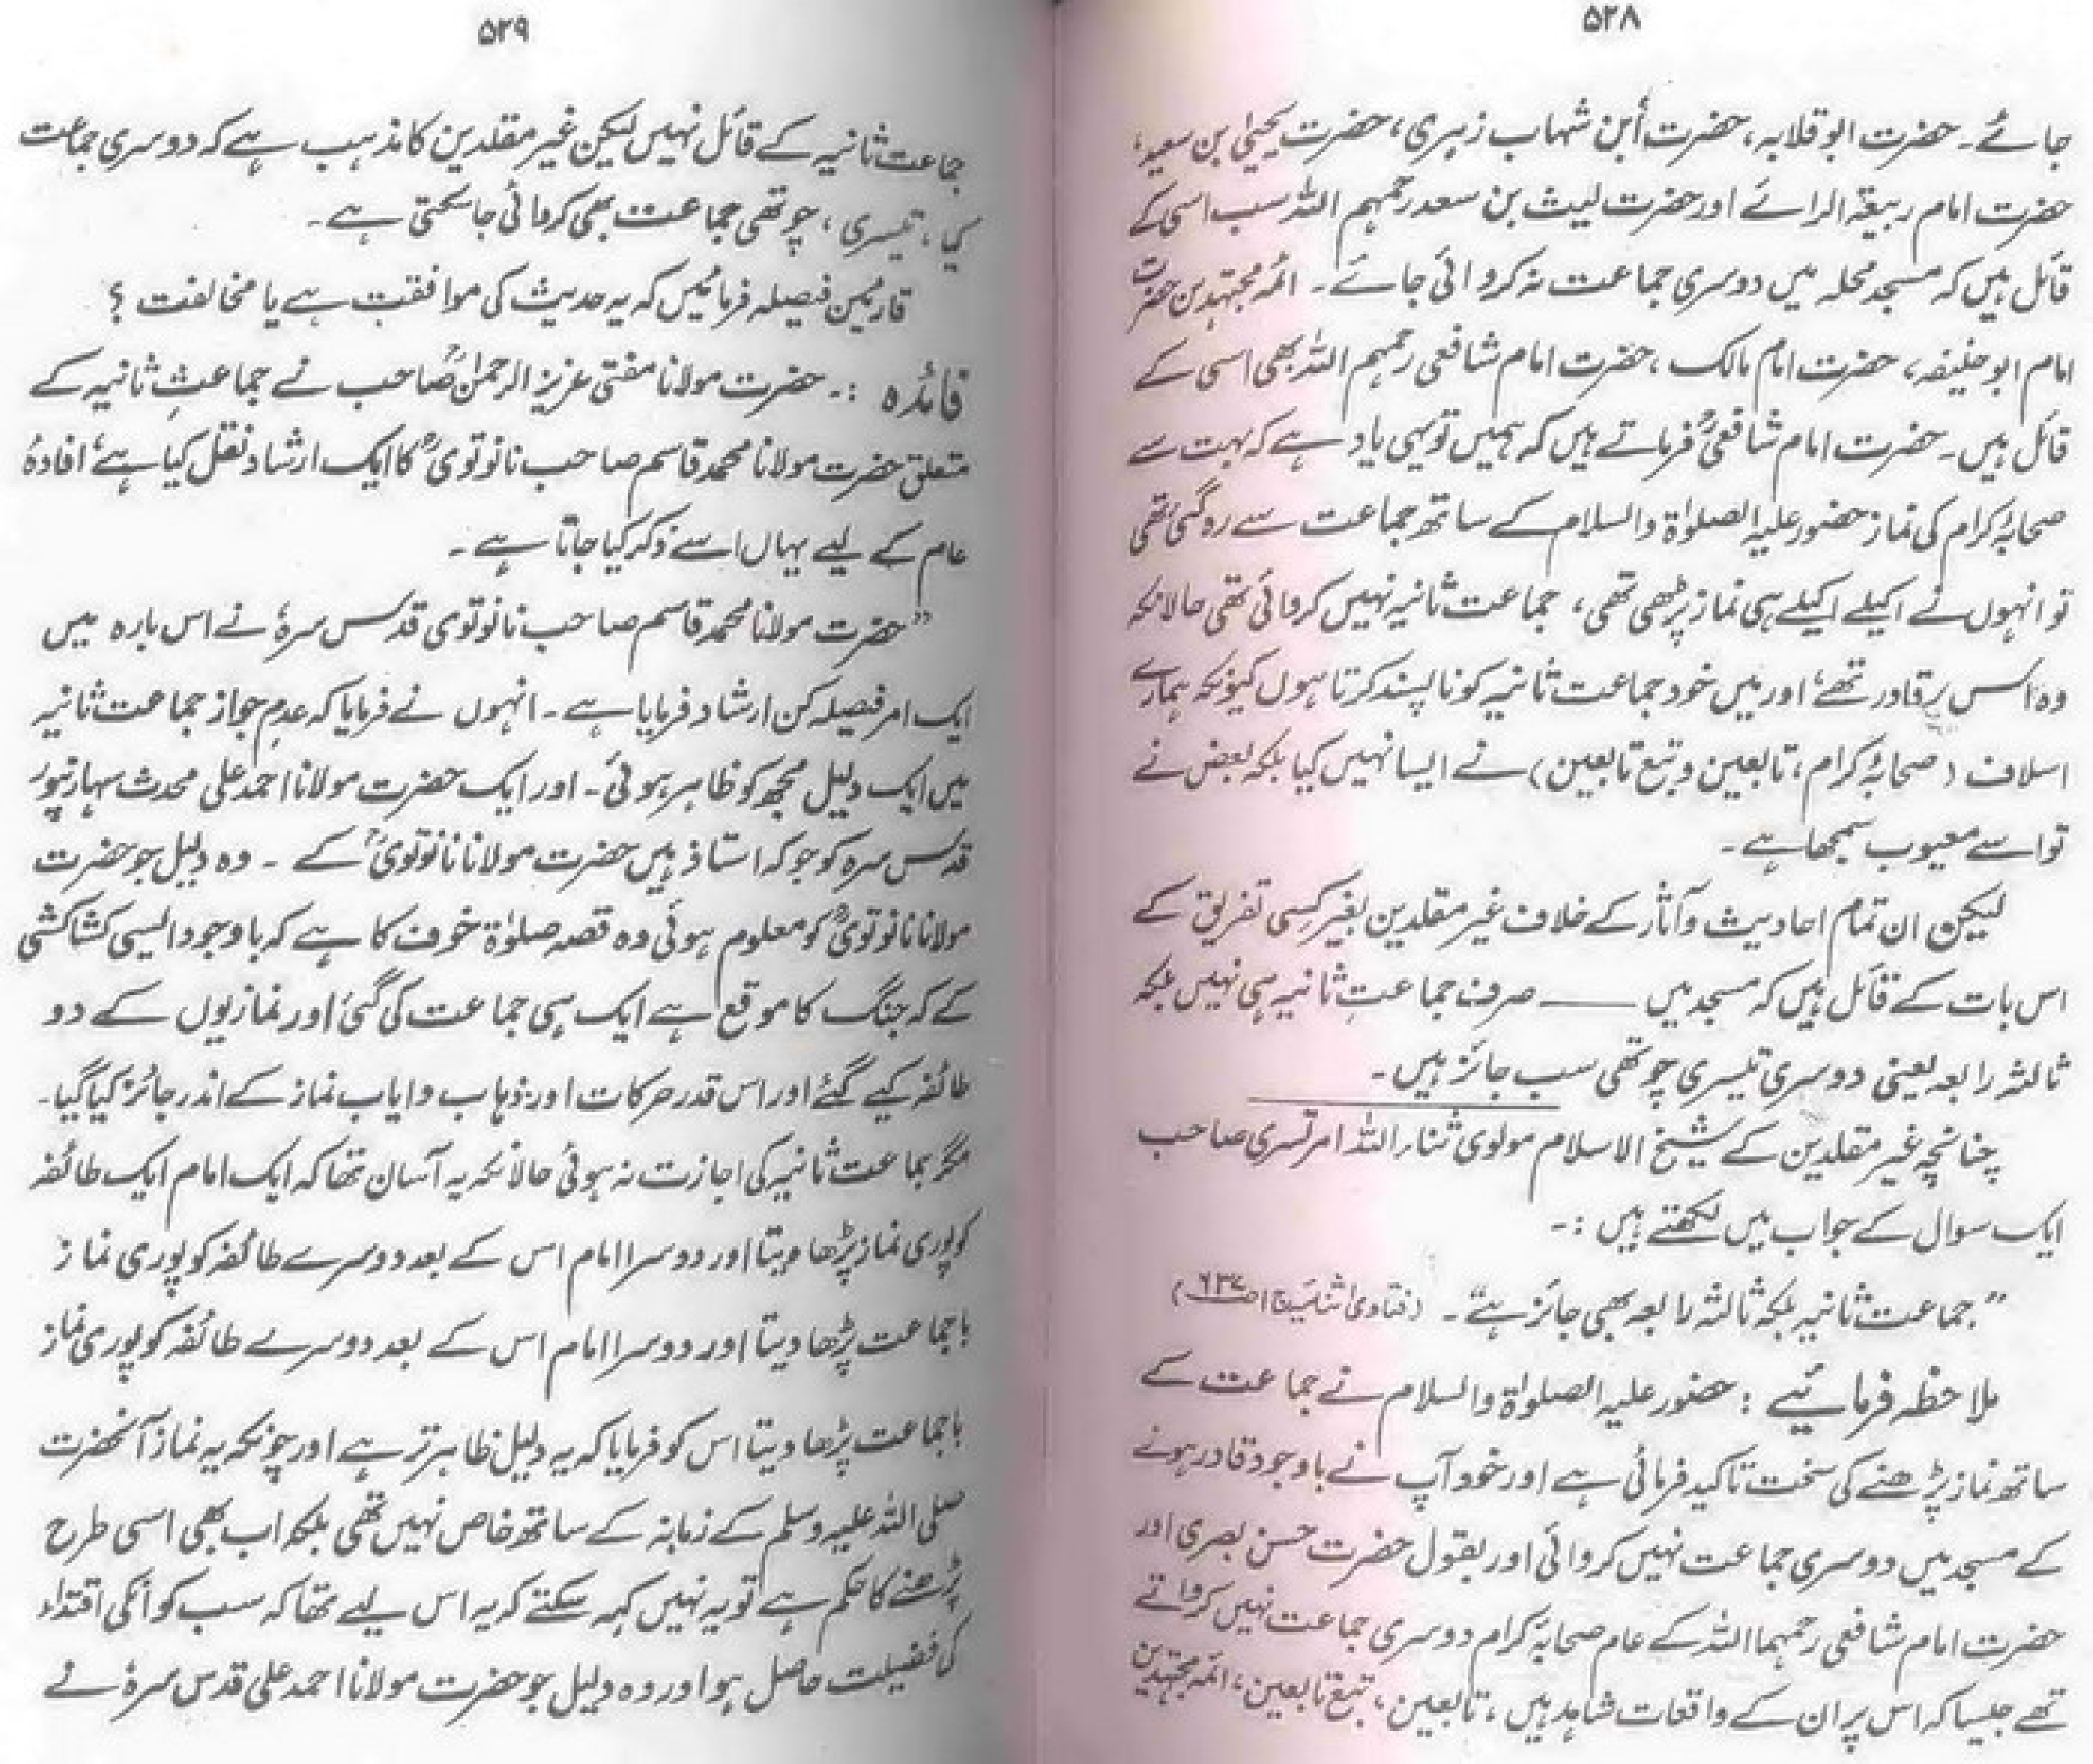 ۵۲۸
جائے۔ حضرت ابو قلابہ، حضرت ابن شہاب زہری، حضرت یحییٰ بن سعید،
حضرت امام ربیعۃ الرائے اور حضرت لیث بن سعد رحمہم اللہ سب اسی کے
قائل ہیں کہ مسجد محلہ میں دوسری جماعت نہ کروائی جائے۔ ائمہ مجتہدین حضرت
امام ابو حنیفہ، حضرت امام مالک، حضرت امام شافعی رحمہم اللہ بھی اسی کے
قائل ہیں۔ حضرت امام شافعیؒ فرماتے ہیں کہ ہمیں تو یہی یاد ہے کہ بہت سے
صحابۂ کرام کی نماز حضور علیہ الصلوٰۃ والسلام کے ساتھ جماعت سے رہ گئی تھی
تو انہوں نے اکیلے اکیلے ہی نماز پڑھی تھی، جماعت ثانیہ نہیں کروائی تھی حالانکہ
وہ اس پر قادر تھے، اور میں خود جماعت ثانیہ کو ناپسند کرتا ہوں کیونکہ ہمارے
اسلاف (صحابۂ کرام، تابعین و تبع تابعین) نے ایسا نہیں کیا بلکہ بعض نے
تو اسے معیوب سمجھا ہے۔
لیکن ان تمام احادیث و آثار کے خلاف غیر مقلدین بغیر کسی تفریق کے
اس بات کے قائل ہیں کہ مسجد میں ــــــ صرف جماعتِ ثانیہ ہی نہیں بلکہ
ثالثہ رابعہ یعنی دوسری تیسری چوتھی سب جائز ہیں۔
چنانچہ غیر مقلدین کے شیخ الاسلام مولوی ثناء اللہ امرتسری صاحب
ایک سوال کے جواب میں لکھتے ہیں :۔
”جماعت ثانیہ بلکہ ثالثہ رابعہ بھی جائز ہے“۔ (فتاویٰ ثنائیہ ج۱ ص۶۳۷)
ملاحظہ فرمائیے : حضور علیہ الصلوٰۃ والسلام نے جماعت کے
ساتھ نماز پڑھنے کی سخت تاکید فرمائی ہے اور خود آپ نے باوجود قادر ہونے
کے مسجد میں دوسری جماعت نہیں کروائی اور بقول حضرت حسن بصری اور
حضرت امام شافعی رحمہما اللہ کے عام صحابۂ کرام دوسری جماعت نہیں کرواتے
تھے جیسا کہ اس پر ان کے واقعات شاہد ہیں، تابعین، تبع تابعین، ائمہ مجتہدین
۵۲۹
جماعت ثانیہ کے قائل نہیں لیکن غیر مقلدین کا مذہب ہے کہ دوسری جماعت
کیا، تیسری، چوتھی جماعت بھی کروائی جا سکتی ہے۔
قارئین فیصلہ فرمائیں کہ یہ حدیث کی موافقت ہے یا مخالفت ؟
فائدہ :۔ حضرت مولانا مفتی عزیز الرحمٰنؒ صاحب نے جماعتِ ثانیہ کے
متعلق حضرت مولانا محمد قاسم صاحب نانوتویؒ کا ایک ارشاد نقل کیا ہے، افادۂ
عام کے لیے یہاں اسے ذکر کیا جاتا ہے۔
”حضرت مولانا محمد قاسم صاحب نانوتوی قدس سرہٗ نے اس بارہ میں
ایک امر فیصلہ کن ارشاد فرمایا ہے۔ انہوں نے فرمایا کہ عدمِ جواز جماعت ثانیہ
میں ایک دلیل مجھ کو ظاہر ہوئی۔ اور ایک حضرت مولانا احمد علی محدث سہارنپوری
قدس سرہ کو جو کہ استاذ ہیں حضرت مولانا نانوتویؒ کے ۔ وہ دلیل جو حضرت
مولانا نانوتویؒ کو معلوم ہوئی وہ قصہ صلوٰۃ خوف کا ہے کہ باوجود ایسی کشاکشی
کے کہ جنگ کا موقع ہے ایک ہی جماعت کی گئی اور نمازیوں کے دو
طائفہ کیے گئے اور اس قدر حرکات اور ذہاب و ایاب نماز کے اندر جائز کیا گیا۔
مگر جماعت ثانیہ کی اجازت نہ ہوئی حالانکہ یہ آسان تھا کہ ایک امام ایک طائفہ
کو پوری نماز پڑھا دیتا اور دوسرا امام اس کے بعد دوسرے طائفہ کو پوری نماز
باجماعت پڑھا دیتا اور دوسرا امام اس کے بعد دوسرے طائفہ کو پوری نماز
باجماعت پڑھا دیتا اس کو فرمایا کہ یہ دلیل ظاہر تر ہے اور چونکہ یہ نماز آنحضرت
صلی اللہ علیہ وسلم کے زمانہ کے ساتھ خاص نہیں تھی بلکہ اب بھی اسی طرح
پڑھنے کا حکم ہے تو یہ نہیں کہہ سکتے کہ یہ اس لیے تھا کہ سب کو آنکی اقتداء
کی فضیلت حاصل ہو اور وہ دلیل جو حضرت مولانا احمد علی قدس سرہٗ نے